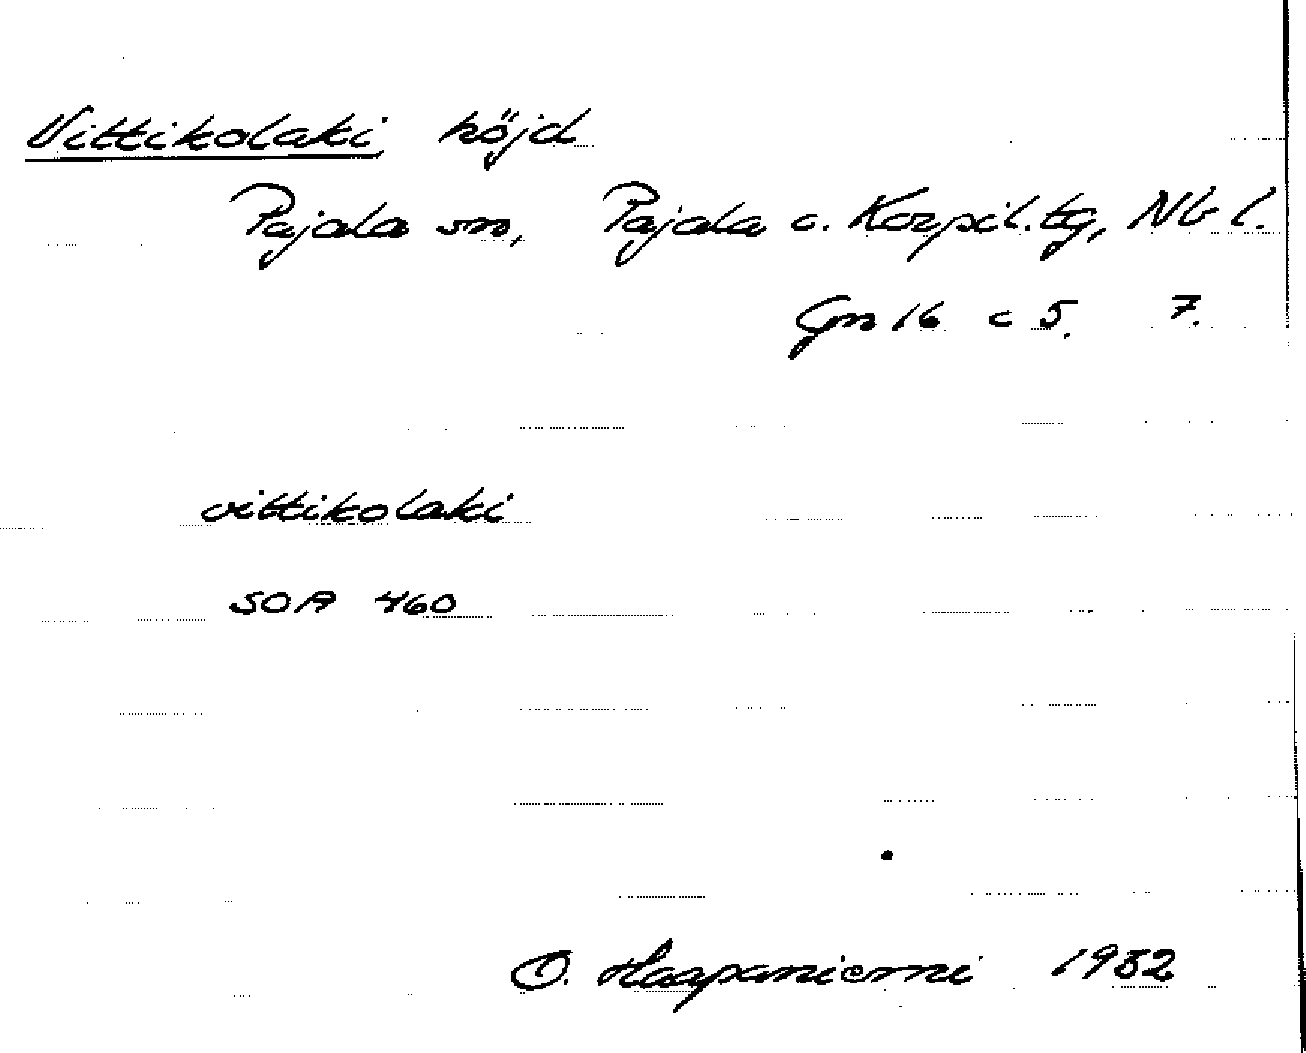 Vittikolaki höjd
Pajala sn, Pajala o. Korpil. tg, Nb l.
Gn 16 c 5. 7.
vittikolaki
SOA 460
O. Haapaniemi 1932